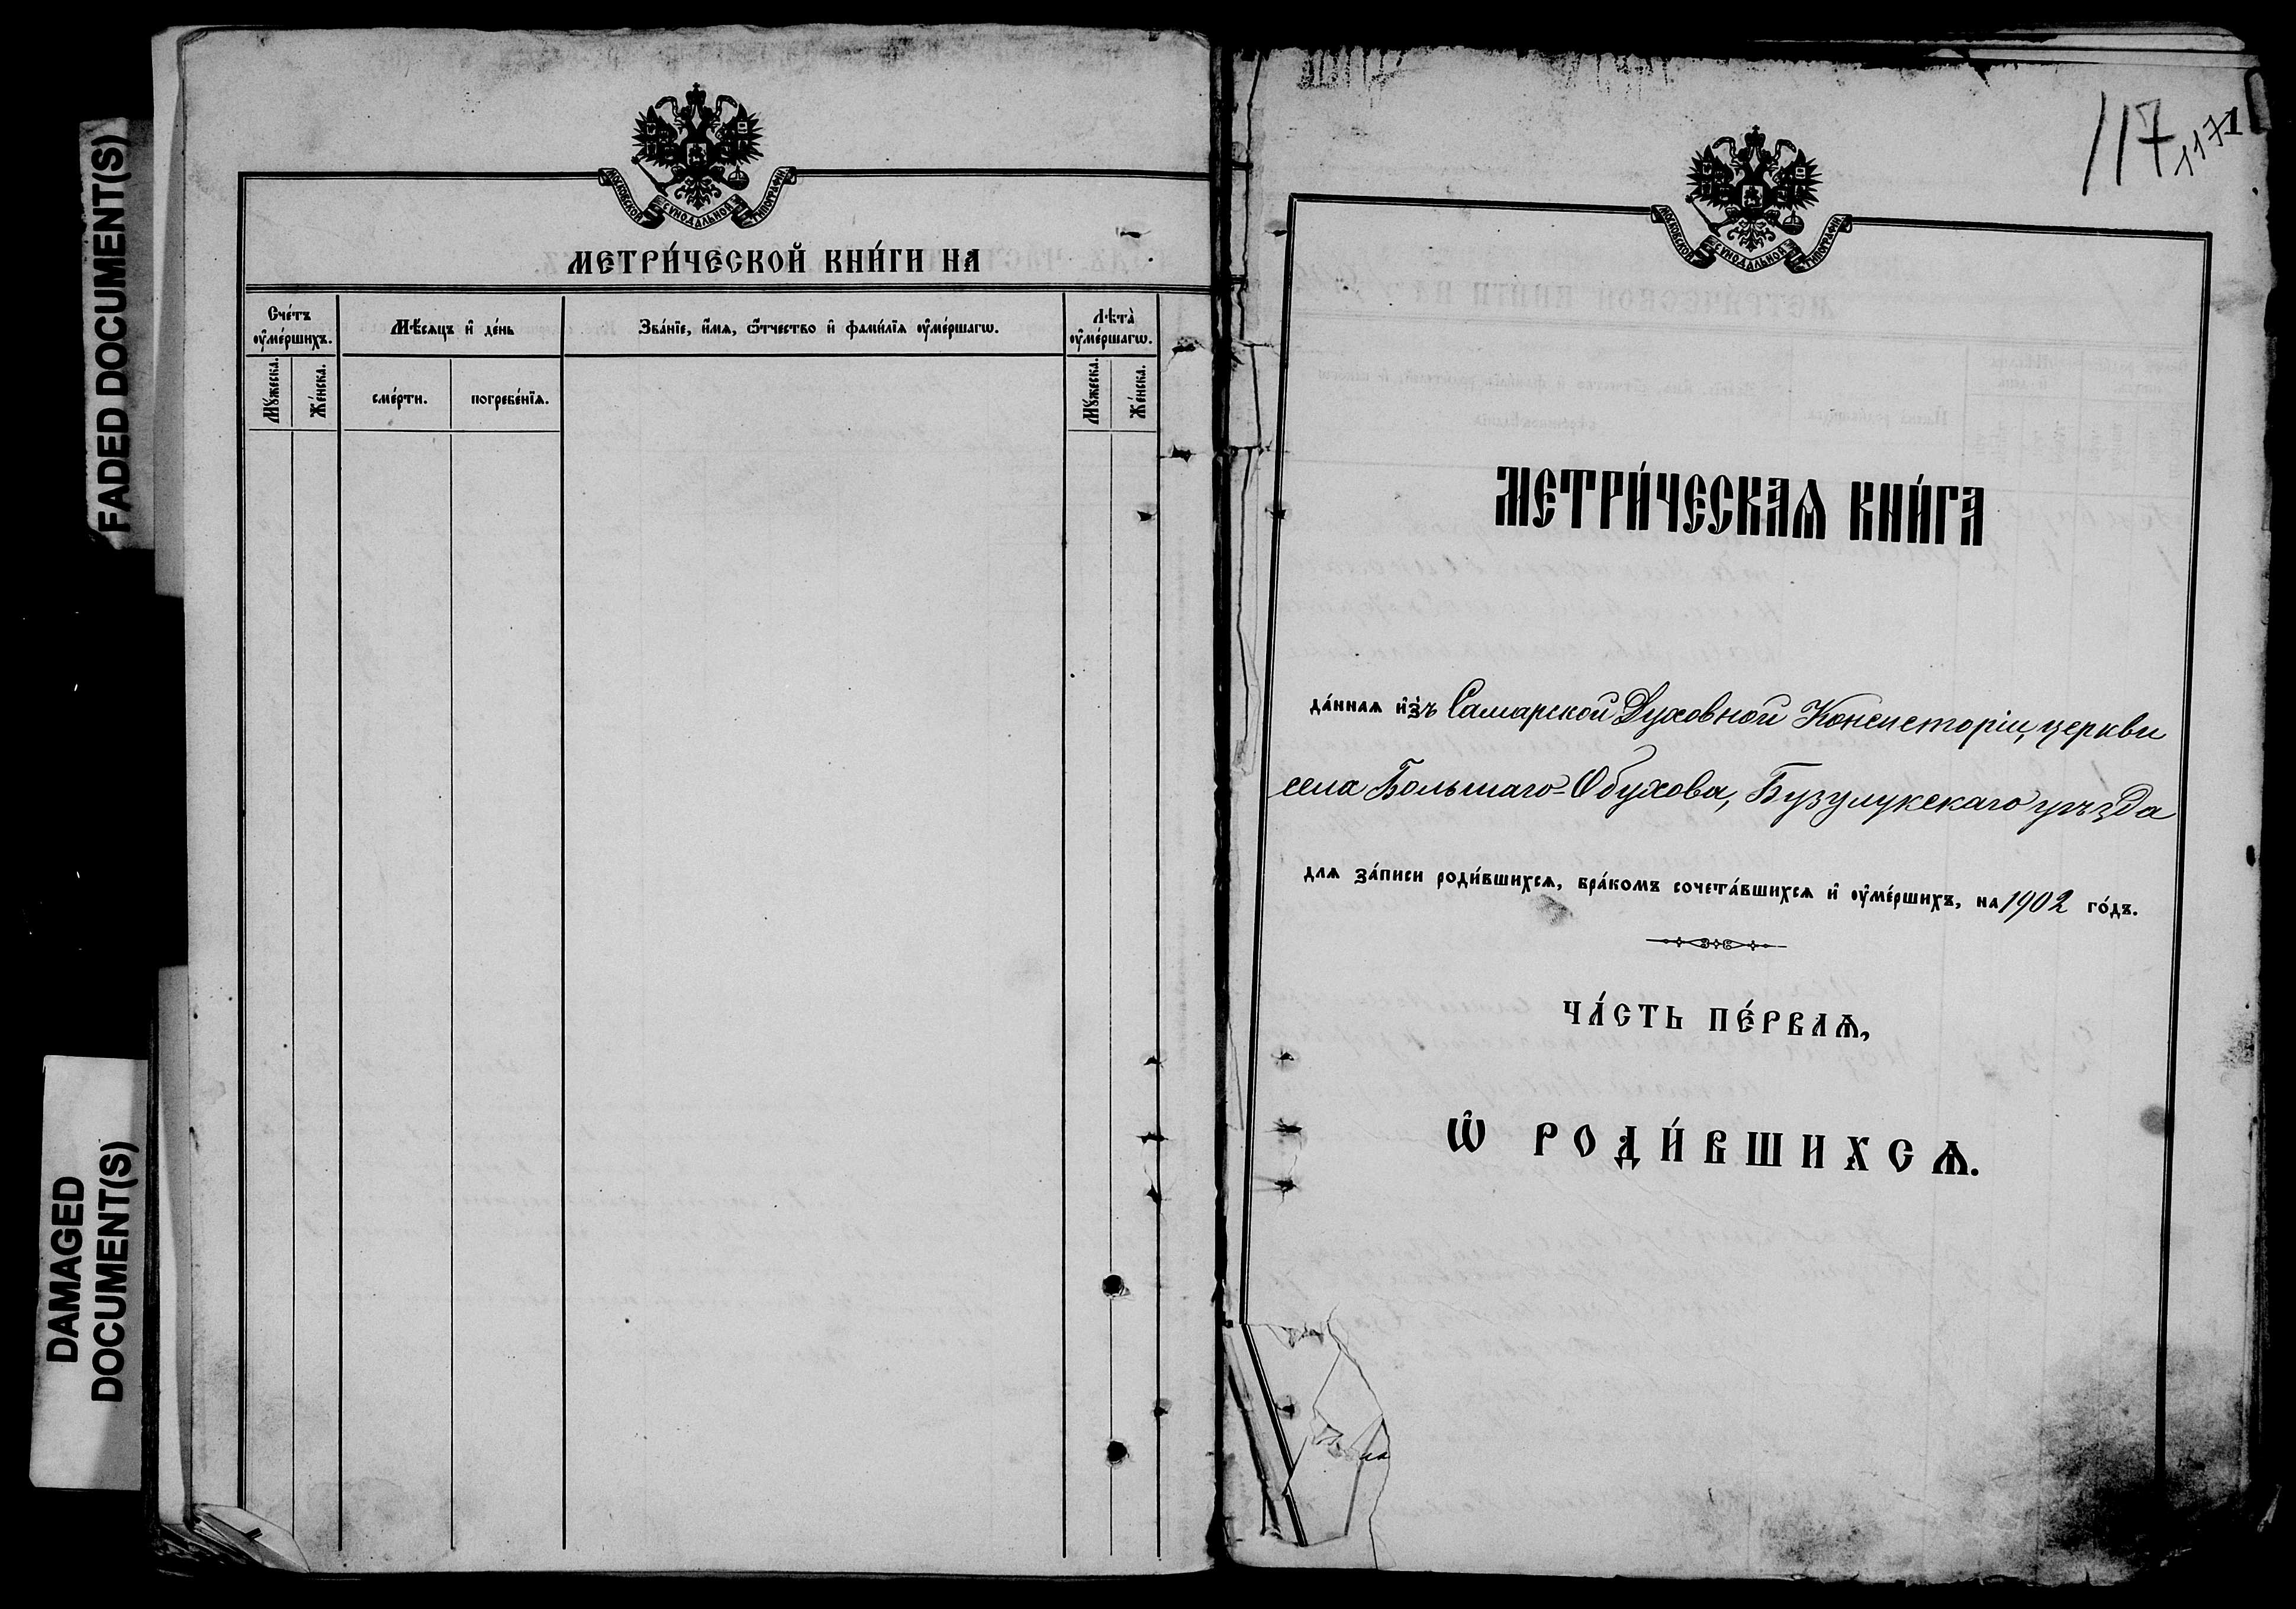 FADED DOCUMENT(S)
DAMAGED
DOCUMENT(S)
МОСКОВСКОЙ СѴНОДАЛЬНОЙ ТИПОГРАФІИ
МЕТРИ́ЧЕСКОЙ КНИ́ГИ НА
Сче́тъ ᲂу҆ме́ршихъ.
Мꙋ́жеска.
Же́нска.
Мѣ́сяцъ и҆ де́нь
сме́рти.
погребе́нїѧ.
Зва́нїе, и҆́мѧ, ѻ҆́тчество и҆ фами́лїѧ ᲂу҆ме́ршагѡ.
Лѣта̀ ᲂу҆ме́ршагѡ.
Мꙋ́жеска.
Же́нска.
117
117
1
МОСКОВСКОЙ СѴНОДАЛЬНОЙ ТИПОГРАФІИ
МЕТРИ́ЧЕСКАѦ КНИ́ГА
да́ннаѧ и҆зъ Самарской Духовной Консисторіи, церкви
села Большаго-Обухова, Бузулукскаго уѣзда
длѧ за́писи роди́вшихсѧ, бра́комъ сочета́вшихсѧ и҆ ᲂу҆ме́ршихъ, на 1902 го́дъ.
ЧА́СТЬ ПЕ́РВАѦ,
Ѡ҆ РОДИ́ВШИХСѦ.